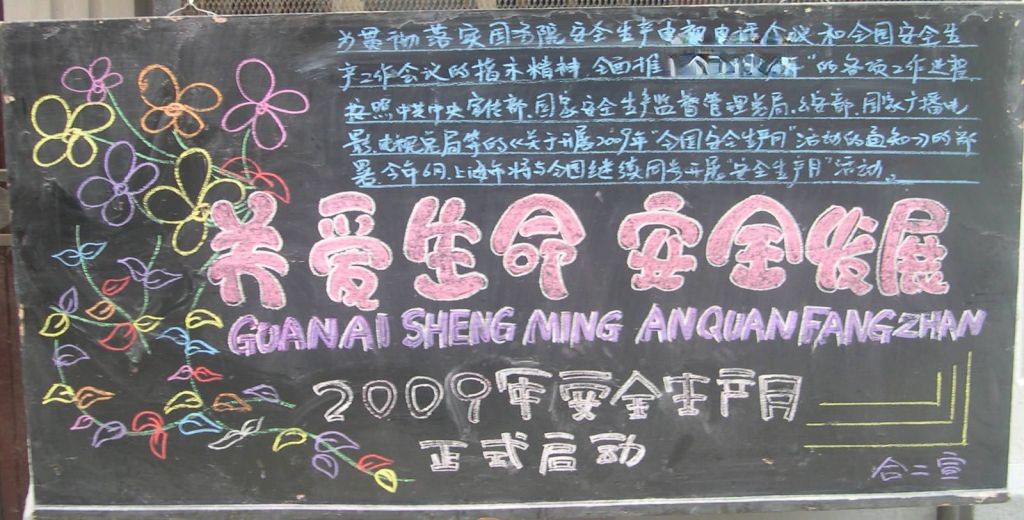 为贯彻落实国务院安全生产电视电话会议和全国安全生
产工作会议的指示精神,全面推"的各项工作进程
按照中共中央宣传部、国家安全生产监督管理总局、公安部、国家广播电
影电视总局等的《关于开展2009年"全国安全生产月"活动的通知》的部
署,今年6月,上海市将与全国继续同步开展"安全生产月"活动。
关爱生命 安全发展
GUANAI SHENG MING ANQUAN FANGZHAN
2009年安全生产月
正式启动
合二宣